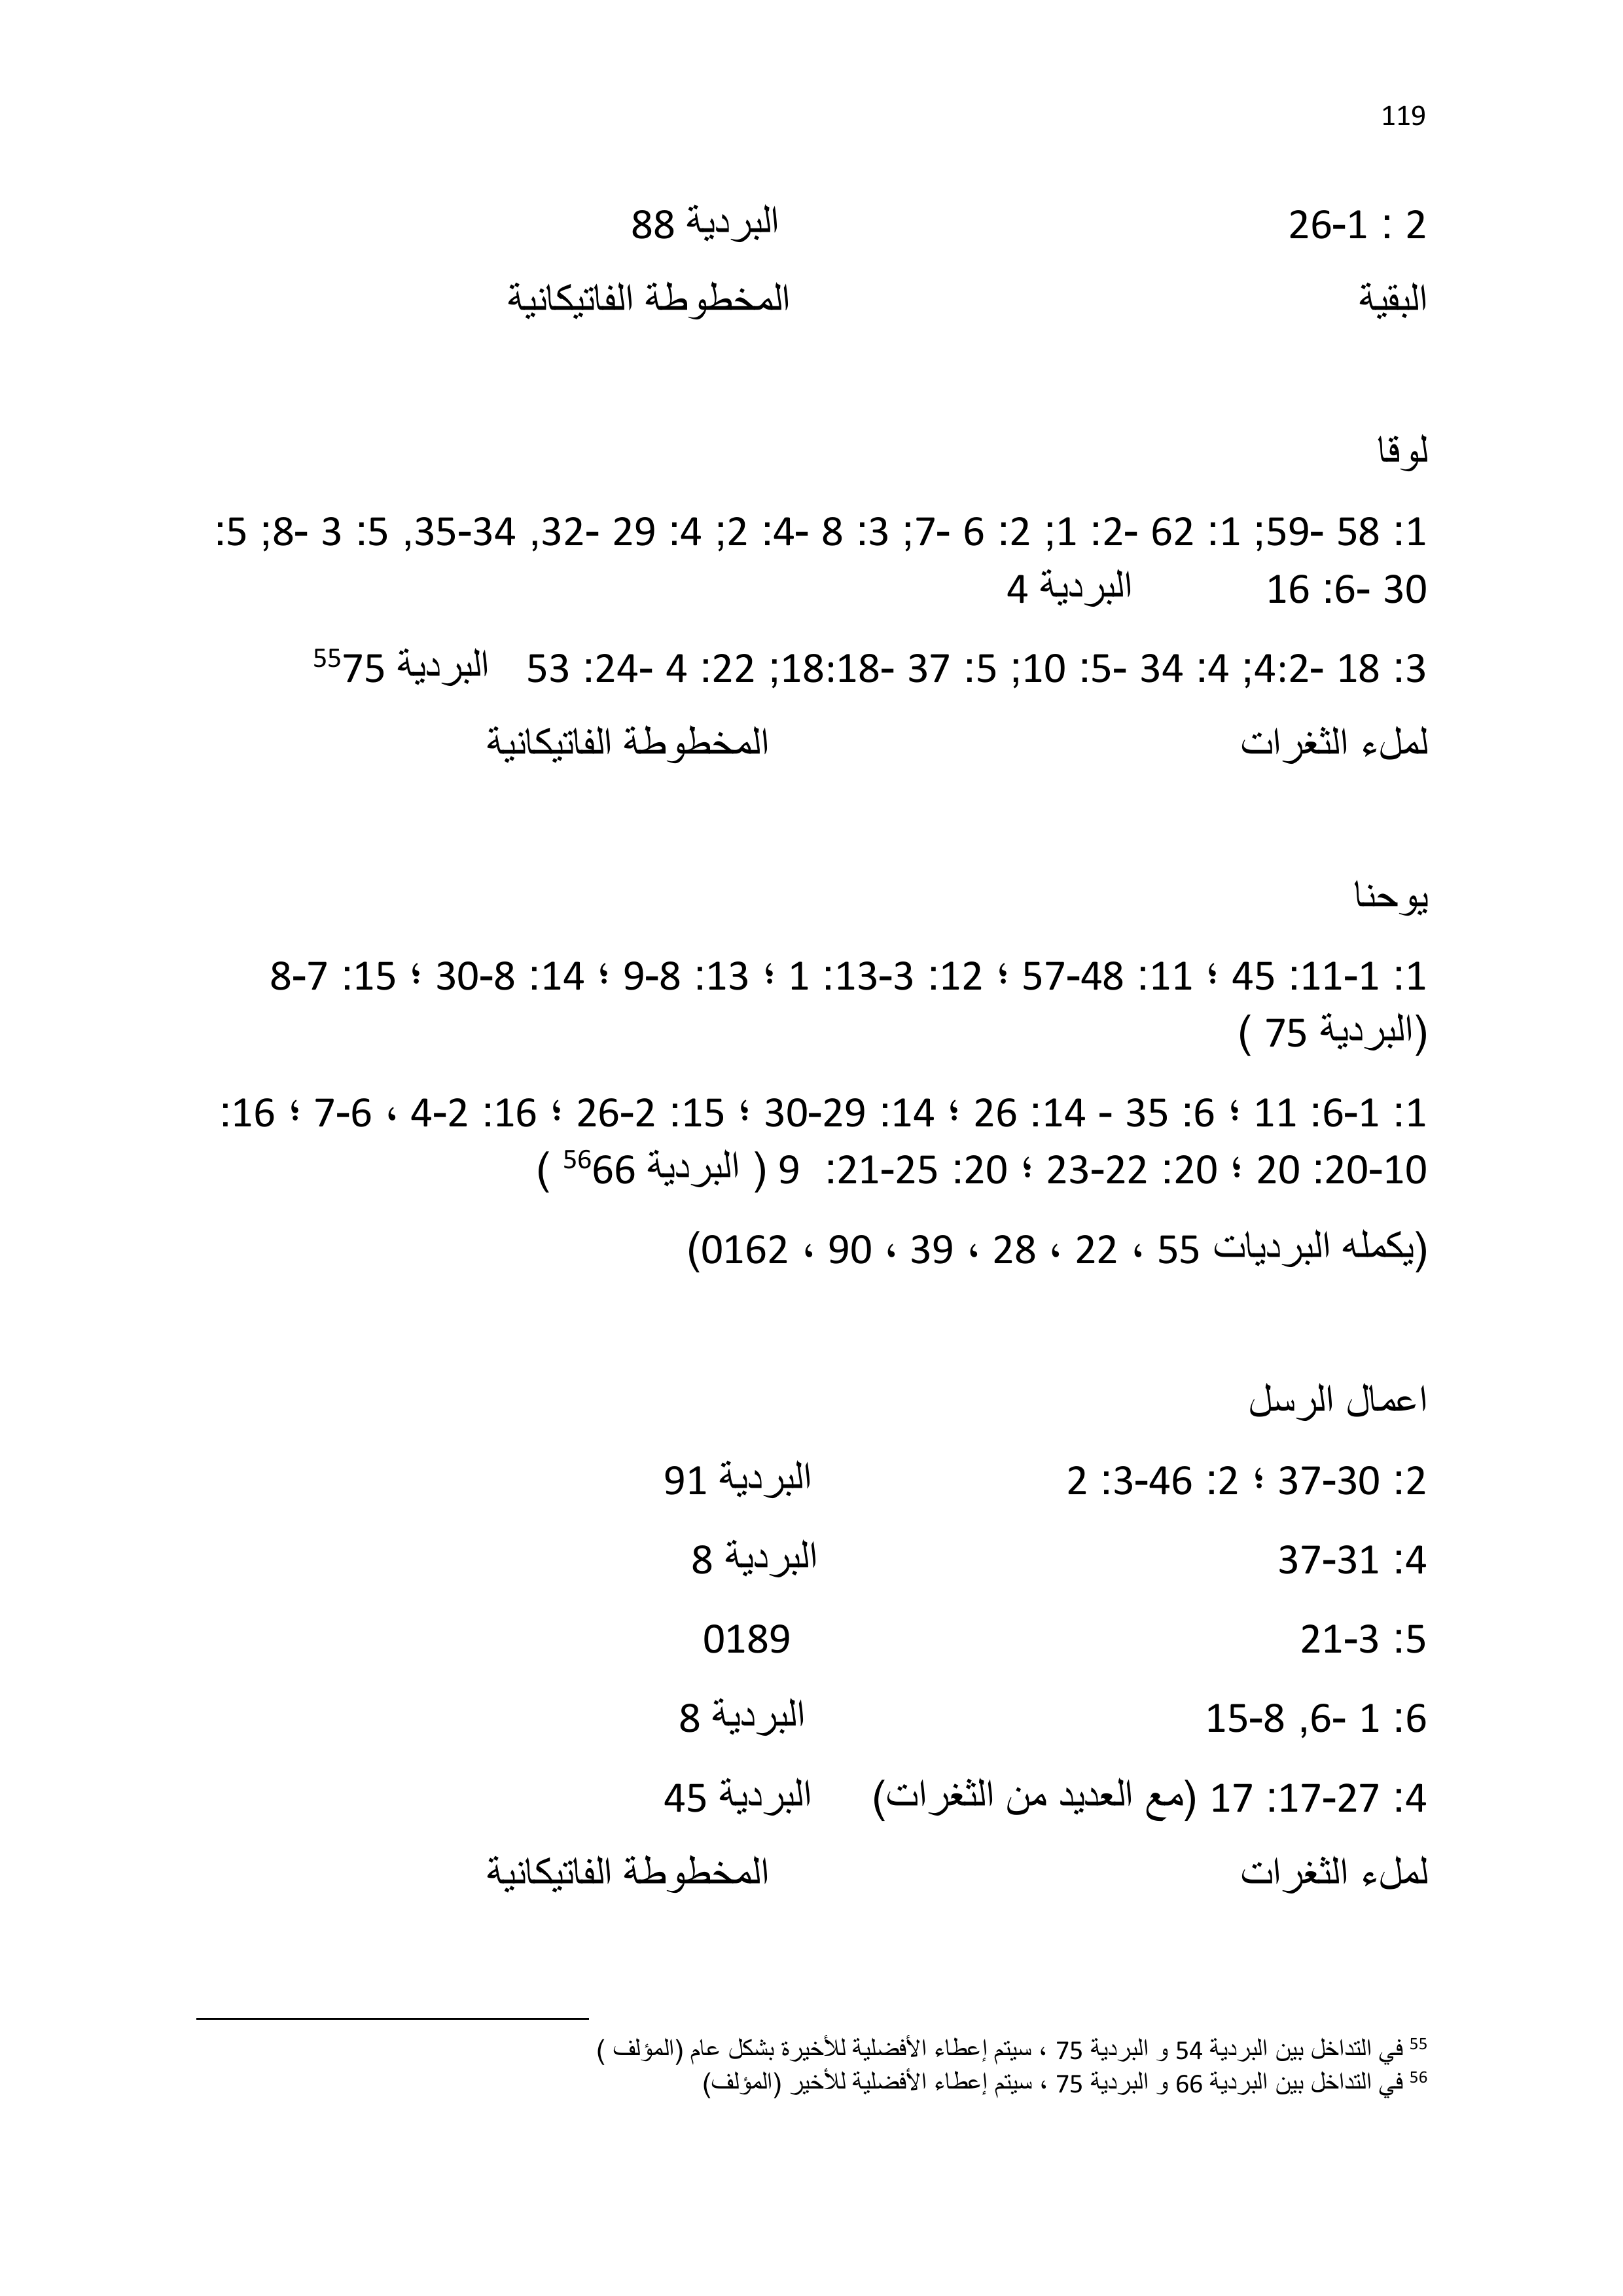 119
2 : 1-26 البردية 88
البقية المخطوطة الفاتيكانية
لوقا
1: 58 -59; 1: 62 -2: 1; 2: 6 -7; 3: 8 -4: 2; 4: 29 -32, 34-35, 5: 3 -8; 5:
30 -6: 16 البردية 4
3: 18 -4:2; 4: 34 -5: 10; 5: 37 -18:18; 22: 4 -24: 53 البردية 75⁵⁵
لملء الثغرات المخطوطة الفاتيكانية
يوحنا
1: 1-11: 45 ؛ 11: 48-57 ؛ 12: 3-13: 1 ؛ 13: 8-9 ؛ 14: 8-30 ؛ 15: 7-8
(البردية 75 )
1: 1-6: 11 ؛ 6: 35 - 14: 26 ؛ 14: 29-30 ؛ 15: 2-26 ؛ 16: 2-4 ، 6-7 ؛ 16:
10-20: 20 ؛ 20: 22-23 ؛ 20: 25-21: 9 ( البردية 66⁵⁶ )
(يكمله البرديات 55 ، 22 ، 28 ، 39 ، 90 ، 0162)
اعمال الرسل
2: 30-37 ؛ 2: 46-3: 2 البردية 91
4: 31-37 البردية 8
5: 3-21 0189
6: 1 -6, 8-15 البردية 8
4: 27-17: 17 (مع العديد من الثغرات) البردية 45
لملء الثغرات المخطوطة الفاتيكانية
⁵⁵ في التداخل بين البردية 54 و البردية 75 ، سيتم إعطاء الأفضلية للأخيرة بشكل عام (المؤلف )
⁵⁶ في التداخل بين البردية 66 و البردية 75 ، سيتم إعطاء الأفضلية للأخير (المؤلف)